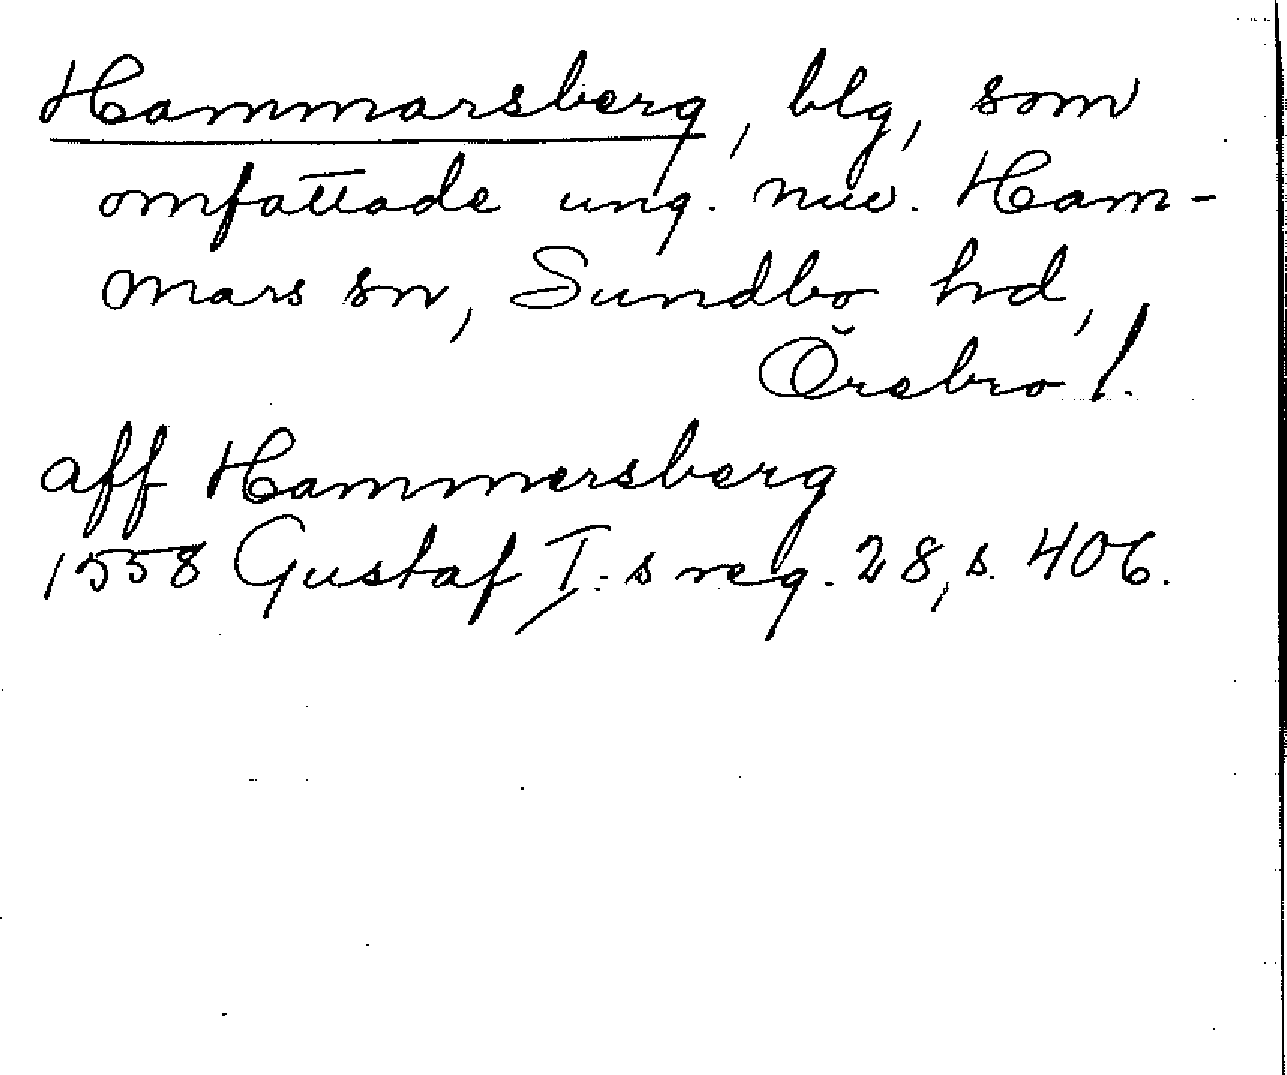 Hammarsberg, blg, som
omfattade ung. nuv. Ham-
mars sn, Sundbo hd,
Örebro l.
aff Hammersberg
1558 Gustaf I.s reg. 28, s. 406.